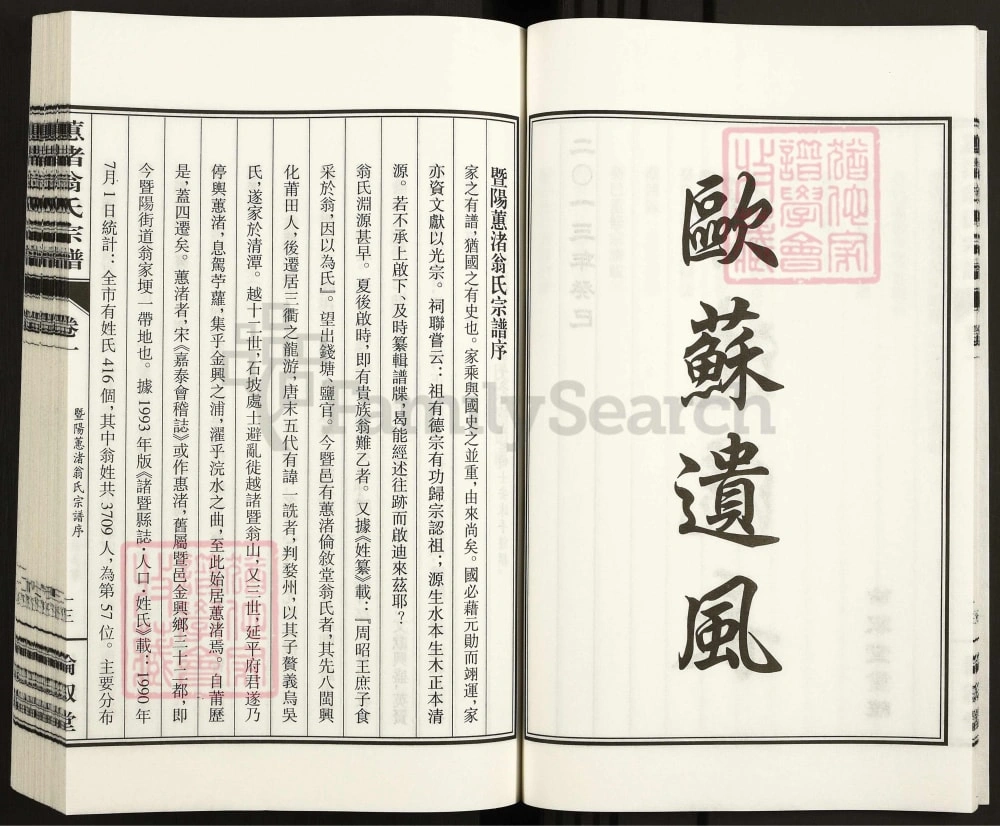 歐蘇遺風
暨陽蕙渚翁氏宗譜序
家之有譜，猶國之有史也。家乘與國史之並重，由來尚矣。國必藉元勛而翊運，家
亦資文獻以光宗。祠聯嘗云：祖有德宗有功歸宗認祖；源生水本生木正本清
源。若不承上啟下、及時纂輯譜牒，曷能經述往跡而啟迪來茲耶？
翁氏淵源甚早。夏後啟時，即有貴族翁難乙者。又據《姓纂》載：『周昭王庶子食
采於翁，因以為氏』。望出錢塘、鹽官。今暨邑有蕙渚倫敘堂翁氏者，其先八閩興
化莆田人，後遷居三衢之龍游，唐末五代有諱一詵者，判婺州，以其子贅義烏吳
氏，遂家於清潭。越十二世，石坡處士避亂徙越諸暨翁山，又三世，延平府君遂乃
停輿蕙渚，息駕苧蘿，集乎金興之浦，濯乎浣水之曲，至此始居蕙渚焉。自莆歷
是，蓋四遷矣。蕙渚者，宋《嘉泰會稽誌》或作惠渚，舊屬暨邑金興鄉三十二都，即
今暨陽街道翁家埂一帶地也。據1993年版《諸暨縣誌·人口·姓氏》載：1990年
7月1日統計：全市有姓氏416個，其中翁姓共3709人，為第57位。主要分布
蕙渚翁氏宗譜
卷一
暨陽蕙渚翁氏宗譜序
一三
倫敘堂
FamilySearch